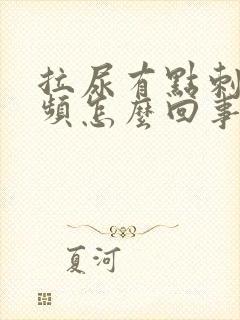 拉尿有點刺
頻怎麼回事
夏河